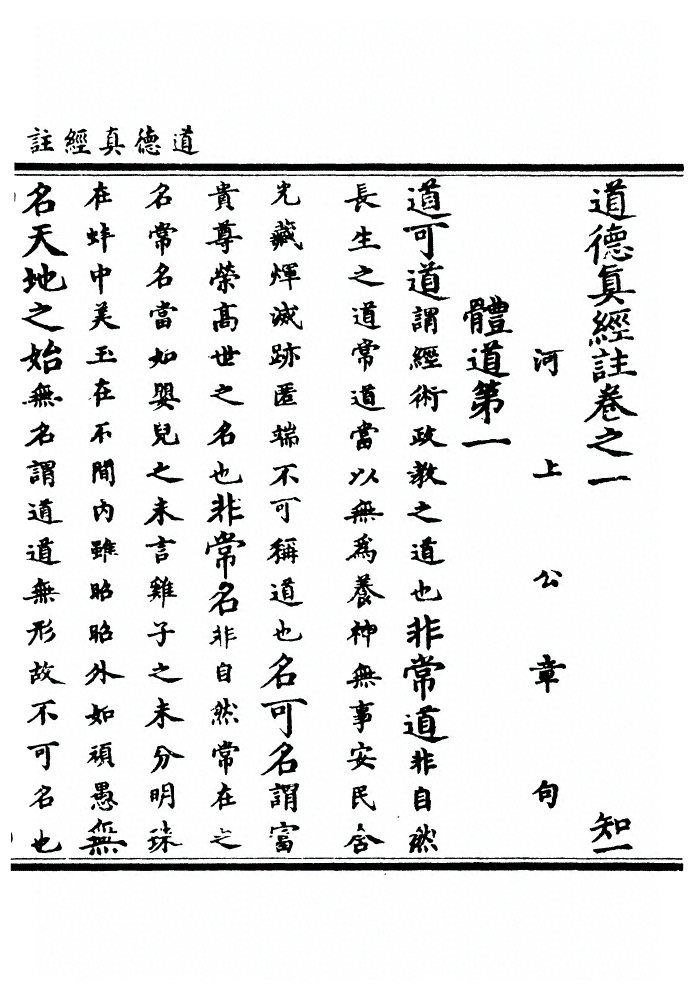 道德真經註
道德眞經註卷之一 知一
河上公章句
體道第一
道可道謂經術政教之道也非常道非自然
長生之道常道當以無爲養神無事安民含
光藏煇滅跡匿端不可稱道也名可名謂富
貴尊榮高世之名也非常名非自然常在之
名常名當如嬰兒之未言雞子之未分明珠
在蚌中美玉在不間內雖昭昭外如頑愚無
名天地之始無名謂道道無形故不可名也